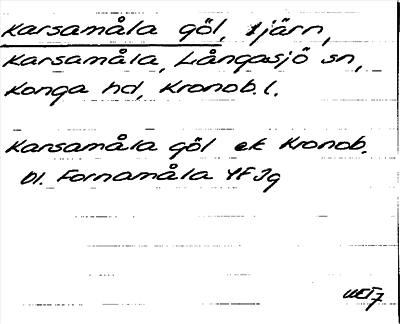 Karsamåla göl, tjärn,
Karsamåla, Långasjö sn,
Konga hd, Kronob. l.
Karsamåla göl ek Kronob.
bl. Fornamåla 4F3g